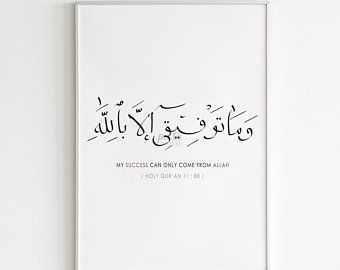 وَمَا تَوْفِيقِي إِلَّا بِاللَّهِ
MY SUCCESS CAN ONLY COME FROM ALLAH
/ HOLY QUR'AN 11 : 88 /